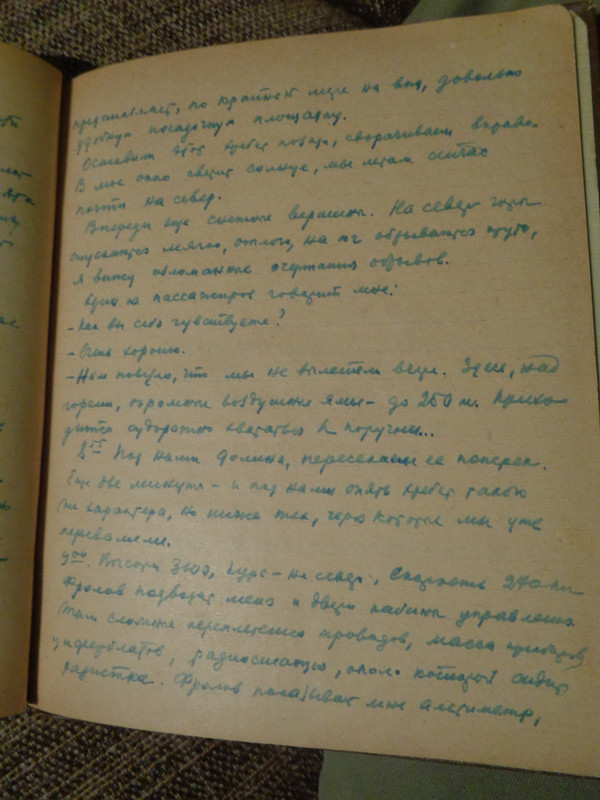 представляет, по крайней мере на вид, довольно
удобную посадочную площадку.
Оставили этот хребет позади, сворачиваем вправо.
В мое окно светит солнце, мы летим сейчас
почти на север.
Впереди еще снежные вершины. На север горы
опускаются мягко, отлого, на юг обрываются круто,
я вижу обломанные очертания обрывов.
Один из пассажиров говорит мне:
- Как вы себя чувствуете?
- Очень хорошо.
- Нам повезло, что мы не вылетели вчера. Здесь, над
горами, огромные воздушные ямы - до 250 м. Прихо-
дится судорожно хвататься за поручни...
Под нами долина, пересекаем ее поперек.
Еще две минуты - и под нами опять хребет такого
же характера, но ниже тех, через которые мы уже
перевалили.
Высота 3600, курс - на север, скорость 240 км
Фролов подводит меня к двери кабины управления
Там сложные переплетения проводов, масса приборов,
циферблатов, радиостанция, около которой сидит
радистка. Фролов показывает мне альтиметр,